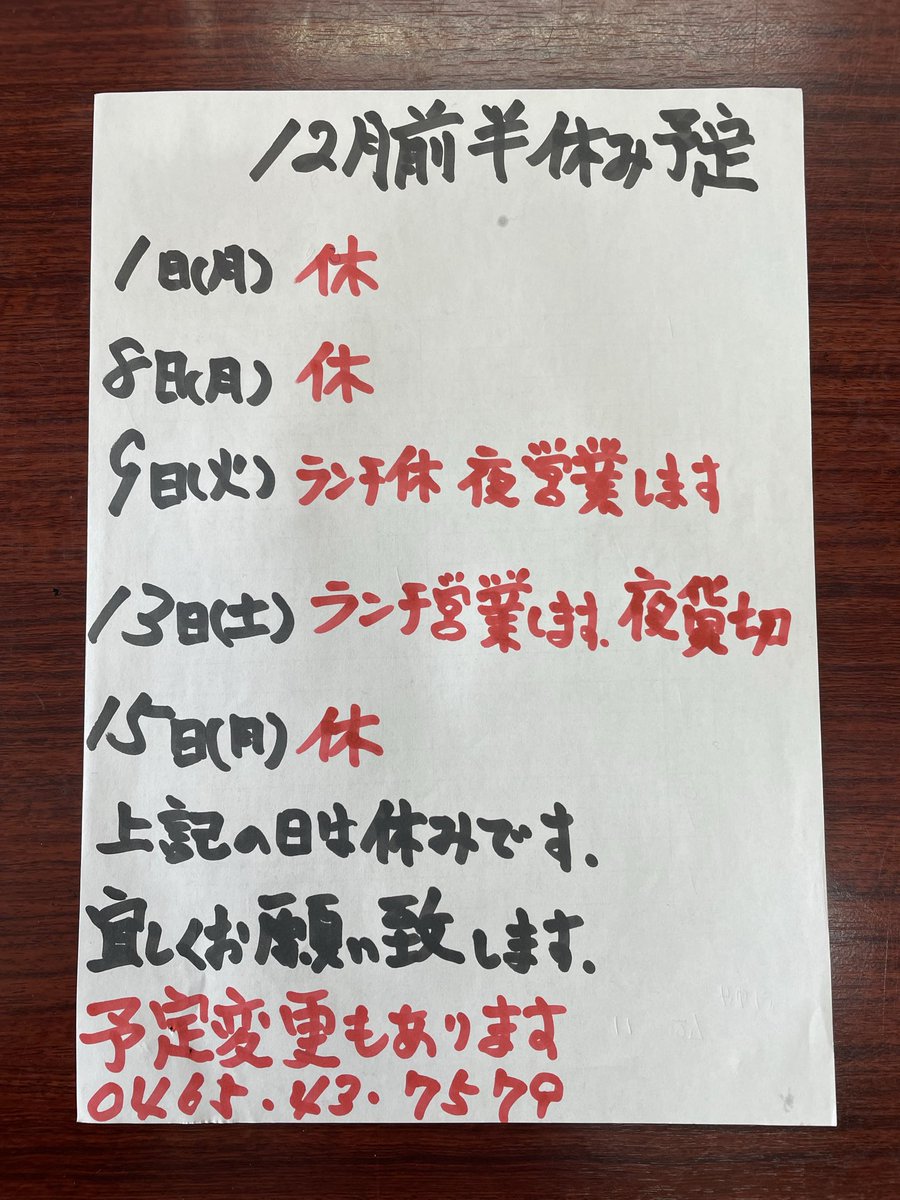 12月前半休み予定
1日(月) 休
8日(月) 休
9日(火) ランチ休 夜営業します
13日(土) ランチ営業します. 夜貸切
15日(月) 休
上記の日は休みです.
宜しくお願い致します.
予定変更もあります
0465.43.7579